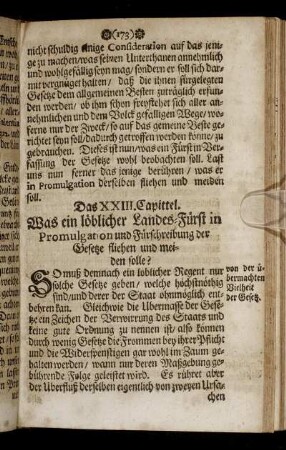 (173)
nicht schuldig einige Consideration auf das jeni-
ge zu machen/was seinen Unterthanen annehmlich
und wohlgefällig seyn mag/sondern er soll sich dar-
mit vergnüget halten/ daß die ihnen fürgelegten
Gesetze dem allgemeinen Besten zuträglich erfun-
den werden/ ob ihm schon freystehet sich aller an-
nehmlichen und dem Volck gefälligen Wege/ wo-
ferne nur der Zweck/ so auf das gemeine Beste ge-
richtet seyn soll/dadurch getroffen werden könne/ zu
gebrauchen. Dieses ist nun/was ein Fürst in Ver-
fassung der Gesetze wohl beobachten soll. Last
uns nun ferner das jenige berühren/ was er
in Promulgation derselben fliehen und meiden
soll.
Das XXIII. Capittel.
Was ein löblicher Landes-Fürst in
Promulgation und Fürschreibung der
Gesetze fliehen und mei-
den solle?
SO muß demnach ein löblicher Regent nur
solche Gesetze geben/ welche höchstnöthig
sind/und derer der Staat ohnmöglich ent-
behren kan. Gleichwie die Ubermasse der Gese-
tze ein Zeichen der Verwirrung des Staats und
keine gute Ordnung zu nennen ist/also können
durch wenig Gesetze die Frommen bey ihrer Pflicht
und die Widerspenstigen gar wohl im Zaum ge-
halten werden/ wann nur deren Maßgebung ge-
bührende Folge geleistet wird. Es rühret aber
der Uberfluß derselben eigentlich von zweyen Ursa-
chen
von der ü-
bermachten
Vielheit
der Gesetz.